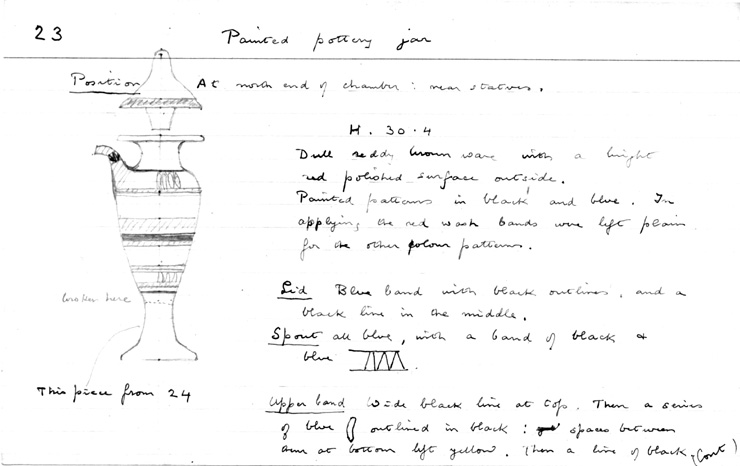 23
Painted pottery jar
Position At north end of chamber : near statues.
H. 30.4
Dull reddy brown ware with a bright
red polished surface outside.
Painted patterns in black and blue. In
applying the red wash bands were left plain
for the other colour patterns.
broken here
Lid Blue band with black outlines, and a
black line in the middle.
Spout all blue, with a band of black &
blue
This piece from 24
Upper band Wide black line at top. Then a series
of blue outlined in black : spaces between
at bottom left yellow. Then a line of black, (Cont)